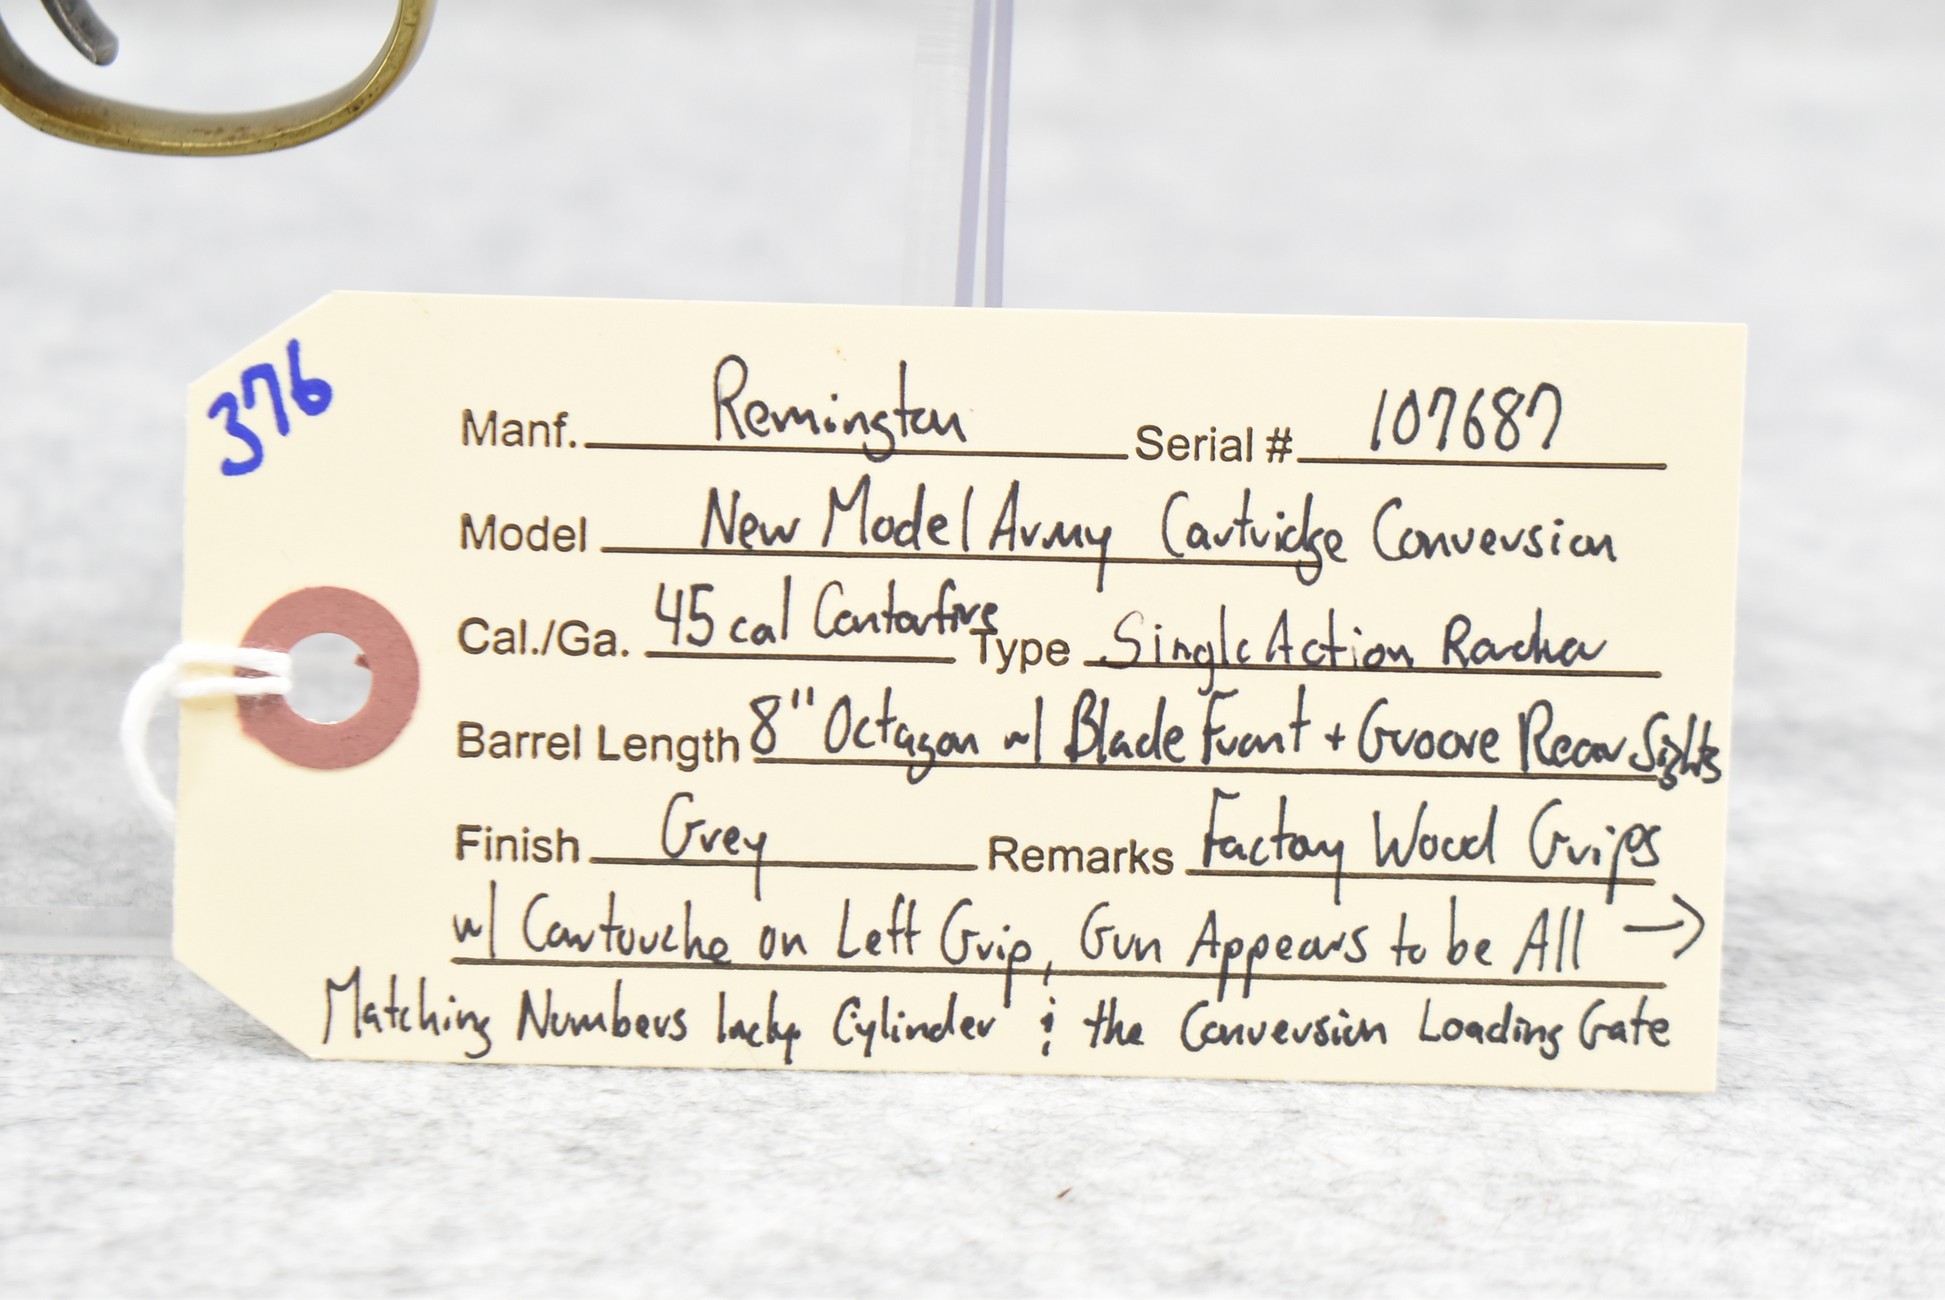 376
Manf. Remington Serial # 107687
Model New Model Army Cartridge Conversion
Cal./Ga. 45 cal Centerfire Type Single Action
Barrel Length 8" Octagon w/ Blade Front + Groove Rear Sights
Finish Grey Remarks Factory Wood Grips
w/ Cartouche on Left Grip, Gun Appears to be All →
Matching Numbers Cylinder & the Conversion Loading Gate